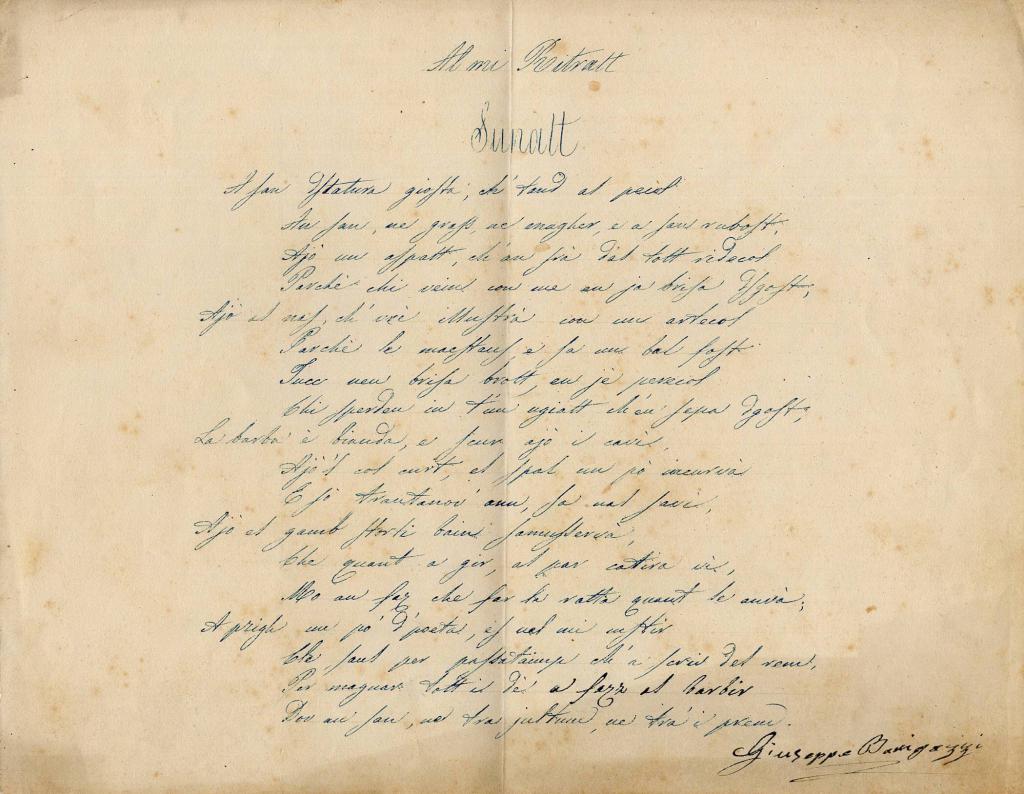 Al mi Ritratt
Sunatt
A san Statura giosta, ch' tend al
An san, ne grass, ne magher, e a san rubost,
Ajò un aspatt, ch'an srà dal tott ridecol
Parchè chi veins con me an ja brisa
Ajò el nas, ch' vrè illustrà con un artecol
Parchè le maestous, e fa un bal fost
Tucc nen brisa brott, en je perecol
Chi sperden in t'un ch'en sepa dgost;
La barba è bianda, e scur ajò i cavì,
Ajò'l col curt, el spal un pò incurvià
E sò trantanov' ann, sa nal savì,
Ajò el gamb storti bain
Che quant a gir, al par cativa vis,
Mo an faz che far la ratta quant le anvà;
A prigh un po' d'poeta, es nel mi mstir
Che sault per passatàimp ch'a scriv del remi,
Per magnar tott il dè a fazz al barbir
Dov an san, ne tra jultum, ne tra i premi.
Giuseppe